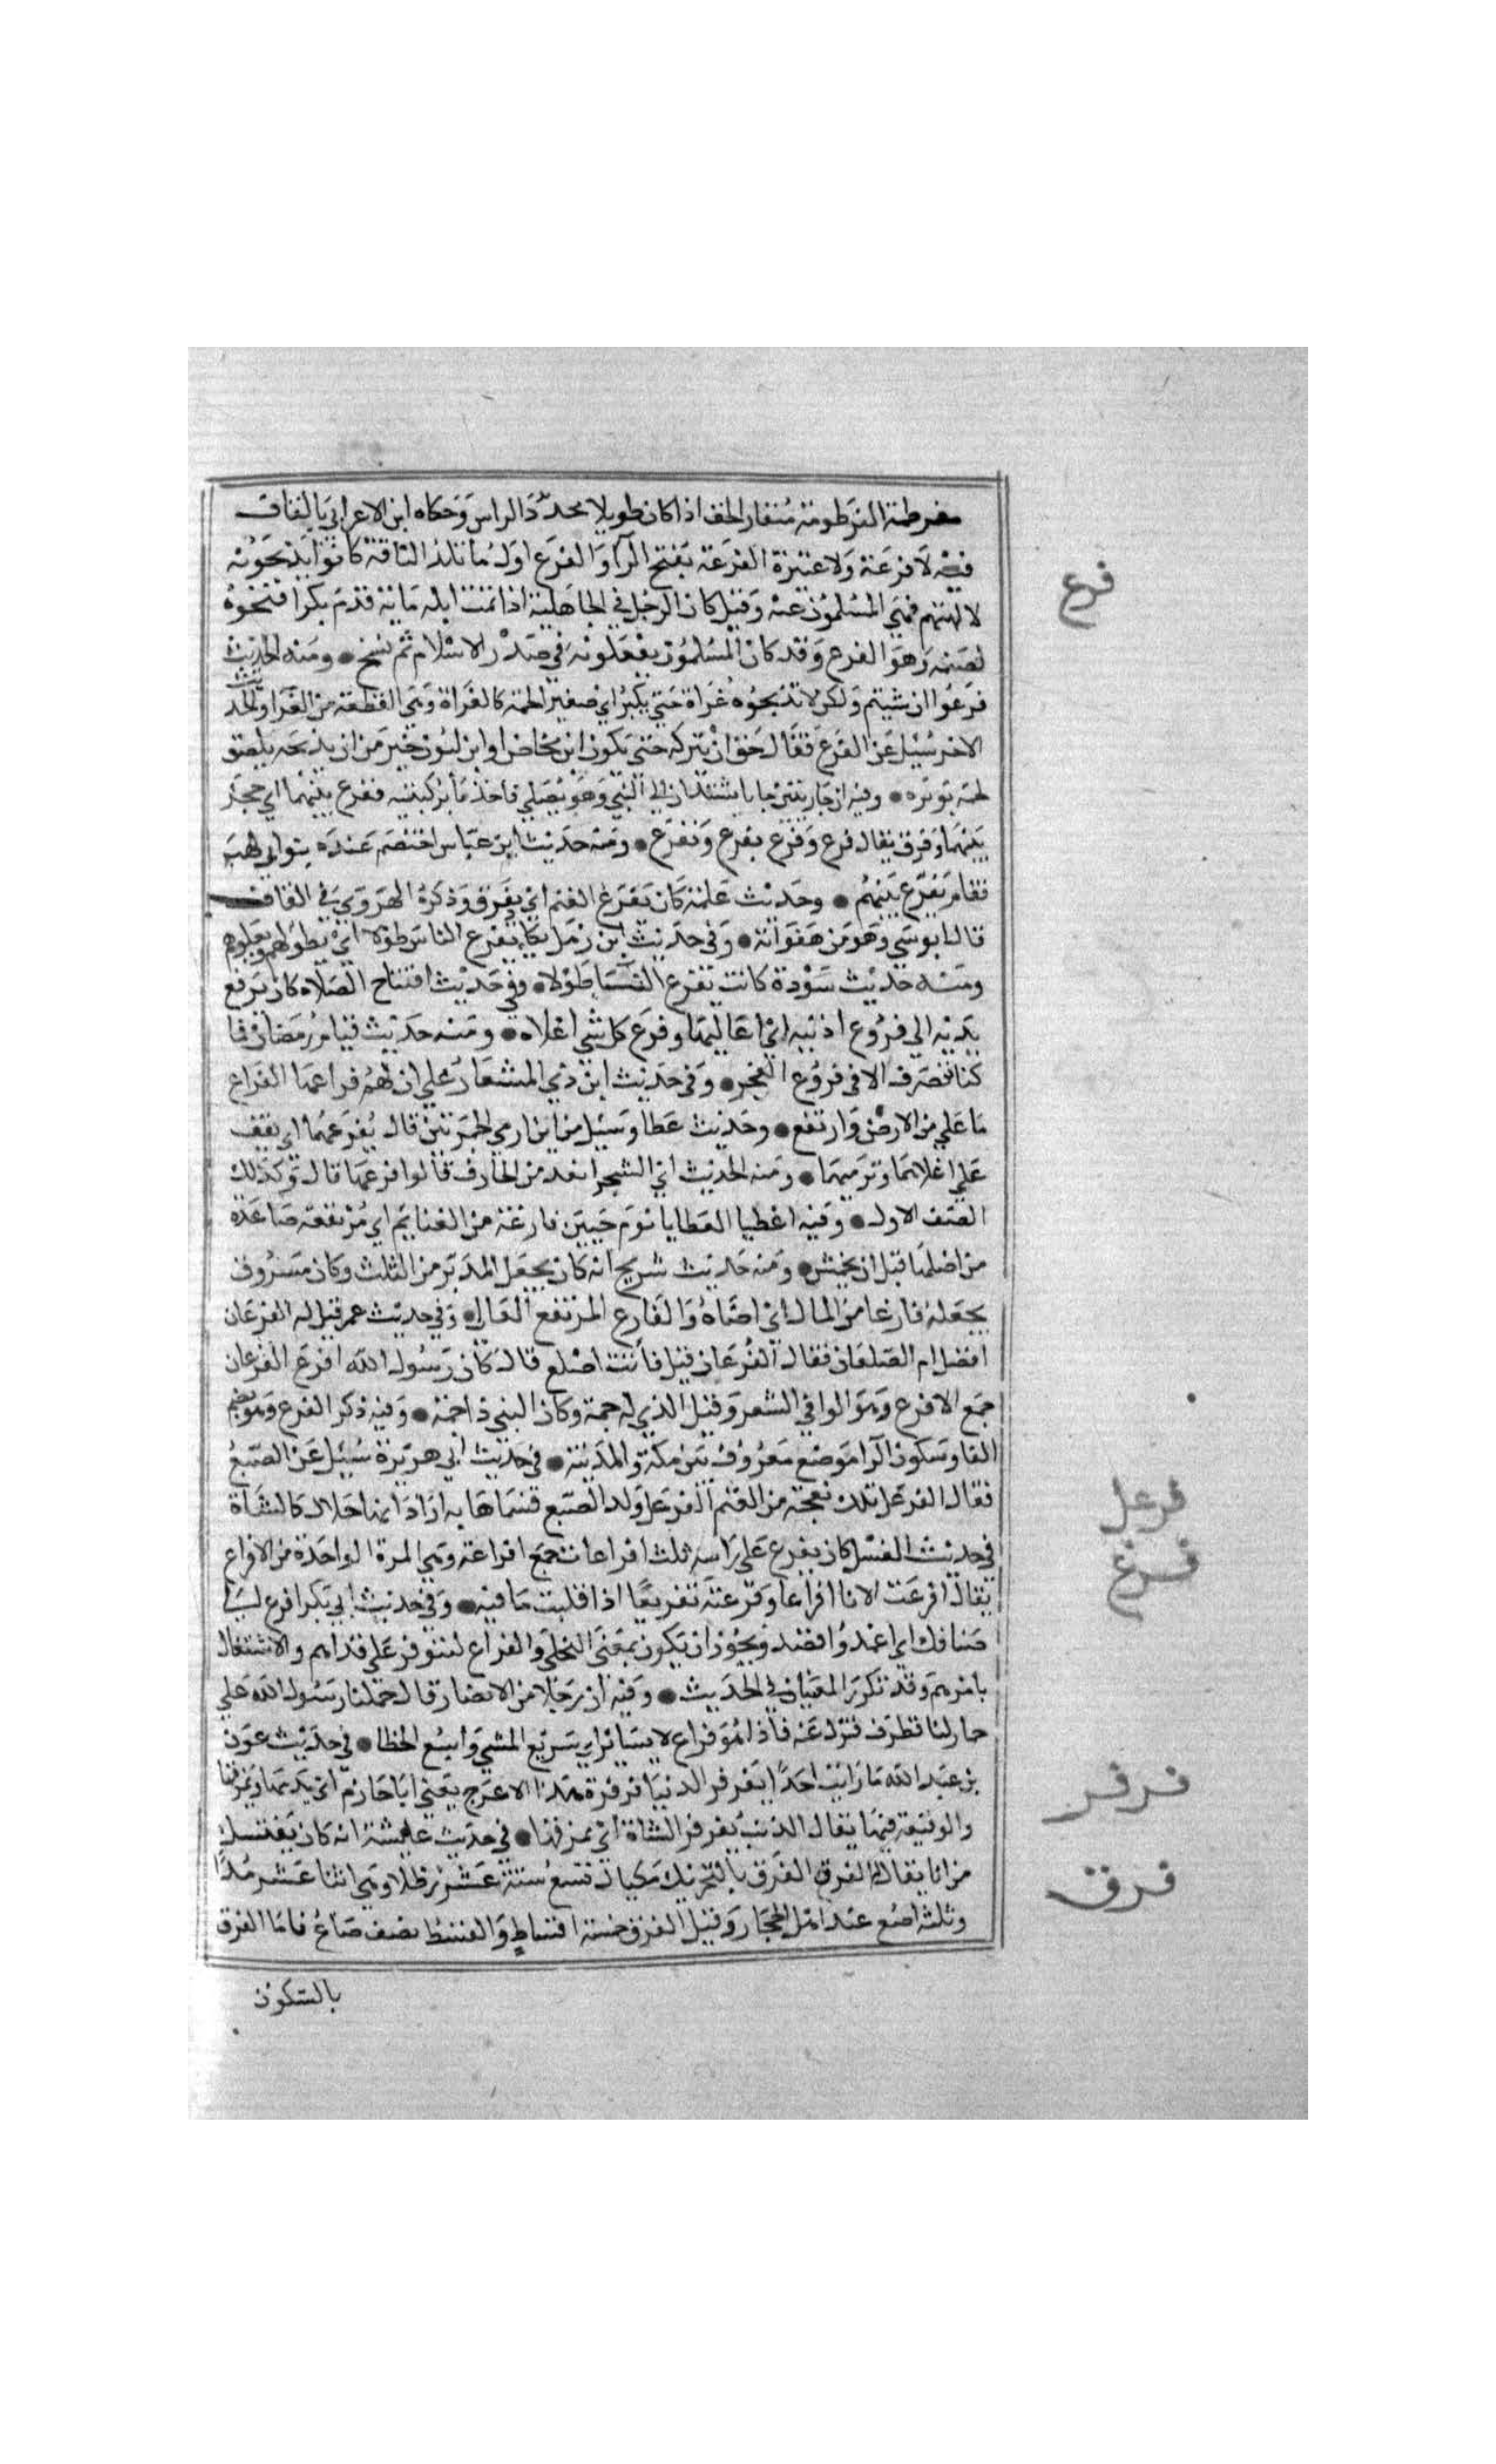 مفرطمة الفرطومة منقار الخف اذا كان طويلا محدد الراس وحكاه ابن الاعرابي بالقاف
فرع
فيه لا فرعة ولا عتيرة الفرعة بفتح الرا والفرع اول ما تلد الناقة كانوا يذبحونه
لالهتهم فنهي المسلمون عنه وقيل كان الرجل في الجاهلية اذا تمت ابله مائة قدم بكرا فنحره
لصنمه وهو الفرع وقد كان المسلمون يفعلونه في صدر الاسلام ثم نسخ ومنه الحديث
فرعوا ان شيتم ولكن لا تذبحوه غراة حتي يكبر اي صغير لحمه كالغراة وهي القطعة من الغرا والحديث
الاخر سئل عن الفرع فقال حق ان تتركه حتي يكون ابن مخاض او ابن لبون خير من ان تذبحه يلصق
لحمه بوبره وفيه ان جاريتين جاتا تشتدان الي النبي وهو يصلي فاخذتا بركبتيه ففرع بينهما اي حجز
بينهما وفرق يقال فرع وفرع يفرع ويفرع ومنه حديث ابن عباس اختصم عنده بنوا ابي لهب
فقام يفرع بينهم وحديث علقمة كان يفرع الغنم اي يفرق وذكره الهروي في القاف
قال ابو موسي وهو من هفواته وفي حديث ابن زمل يكاد يفرع الناس طولا اي يطولهم ويعلوهم
ومنه حديث سودة كانت تفرع النسا طولا وفي حديث افتتاح الصلاه كان يرفع
يديه الي فروع اذنيه اي اعاليهما وفرع كل شي اعلاه ومنه حديث قيام رمضان فما
كنا ننصرف الا في فروع الفجر وفي حديث ابن ذي المشعار علي ان لهم فراعها الفراع
ما علي من الارض وارتفع وحديث عطا وسئل من اين ارمي الجمرتين قال يفرعهما اي يقف
علي اعلاهما وترميهما ومنه الحديث اي الشجر ابعد من الخارف قالوا فرعها قال وكذلك
الصف الاول وفيه اعطي العطايا يوم حنين فارعة من الغنايم اي مرتفعة صاعدة
من اصلها قبل ان يخمس ومنه حديث شريح انه كان يجعل المدبر من الثلث وكان مسروق
يجعله فارعا من المال اي اصله والفارع المرتفع العال وفي حديث عمر قيل له الفرعان
افضل ام الصلعان فقال الفرعان قيل فأنت اصلع قال كان رسول الله افرع الفرعان
جمع الافرع وهو الوافي الشعر وقيل الذي له جمة وكان النبي ذا جمة وفيه ذكر الفرع وهو بضم
الفا وسكون الرا موضع معروف بين مكة والمدينة في حديث ابي هريرة سئل عن الضبع
فرعل
فقال الفرعل تلك نعجة من الغنم الفرعل ولد الضبع فسماها به اراد انها حلال كالشاة
فرغ
في حديث الغسل كان يفرغ علي راسه ثلث افراغات جمع افراغة وهي المرة الواحدة من الافراغ
يقال افرغت الانا افراغا وفرغته تفريغا اذا قلبت ما فيه وفي حديث ابي بكر افرغ لي
ضيافك اي اعمد واقصد ويجوز ان تكون بمعني التخلي والفراغ لتتوفر علي قراهم والاشتغال
بامرهم وقد تكرر المعنيان في الحديث وفيه ان رجلا من الانصار قال حملنا رسول الله علي
حمار لنا قطوف فنزل عنه فاذا هو فراغ لا يساير اي سريع المشي واسع الخطا في حديث عون
فرفر
بن عبد الله ما رايت احدا يفرفر الدنيا فرفرة هذا الاعرج يعني ابا حازم اي يذمها ويمزقها
والوقيعة فيها يقال الذئب يفرفر الشاة اي يمزقها في حديث عايشة انه كان يغتسل
فرق
من انا يقال له الفرق الفرق بالتحريك مكيال تسع ستة عشر رطلا وهي اثنا عشر مدا
وثلثه اصع عند اهل الحجاز وقيل الفرق خمسة اقساط والقسط نصف صاع فاما الفرق
بالسكون